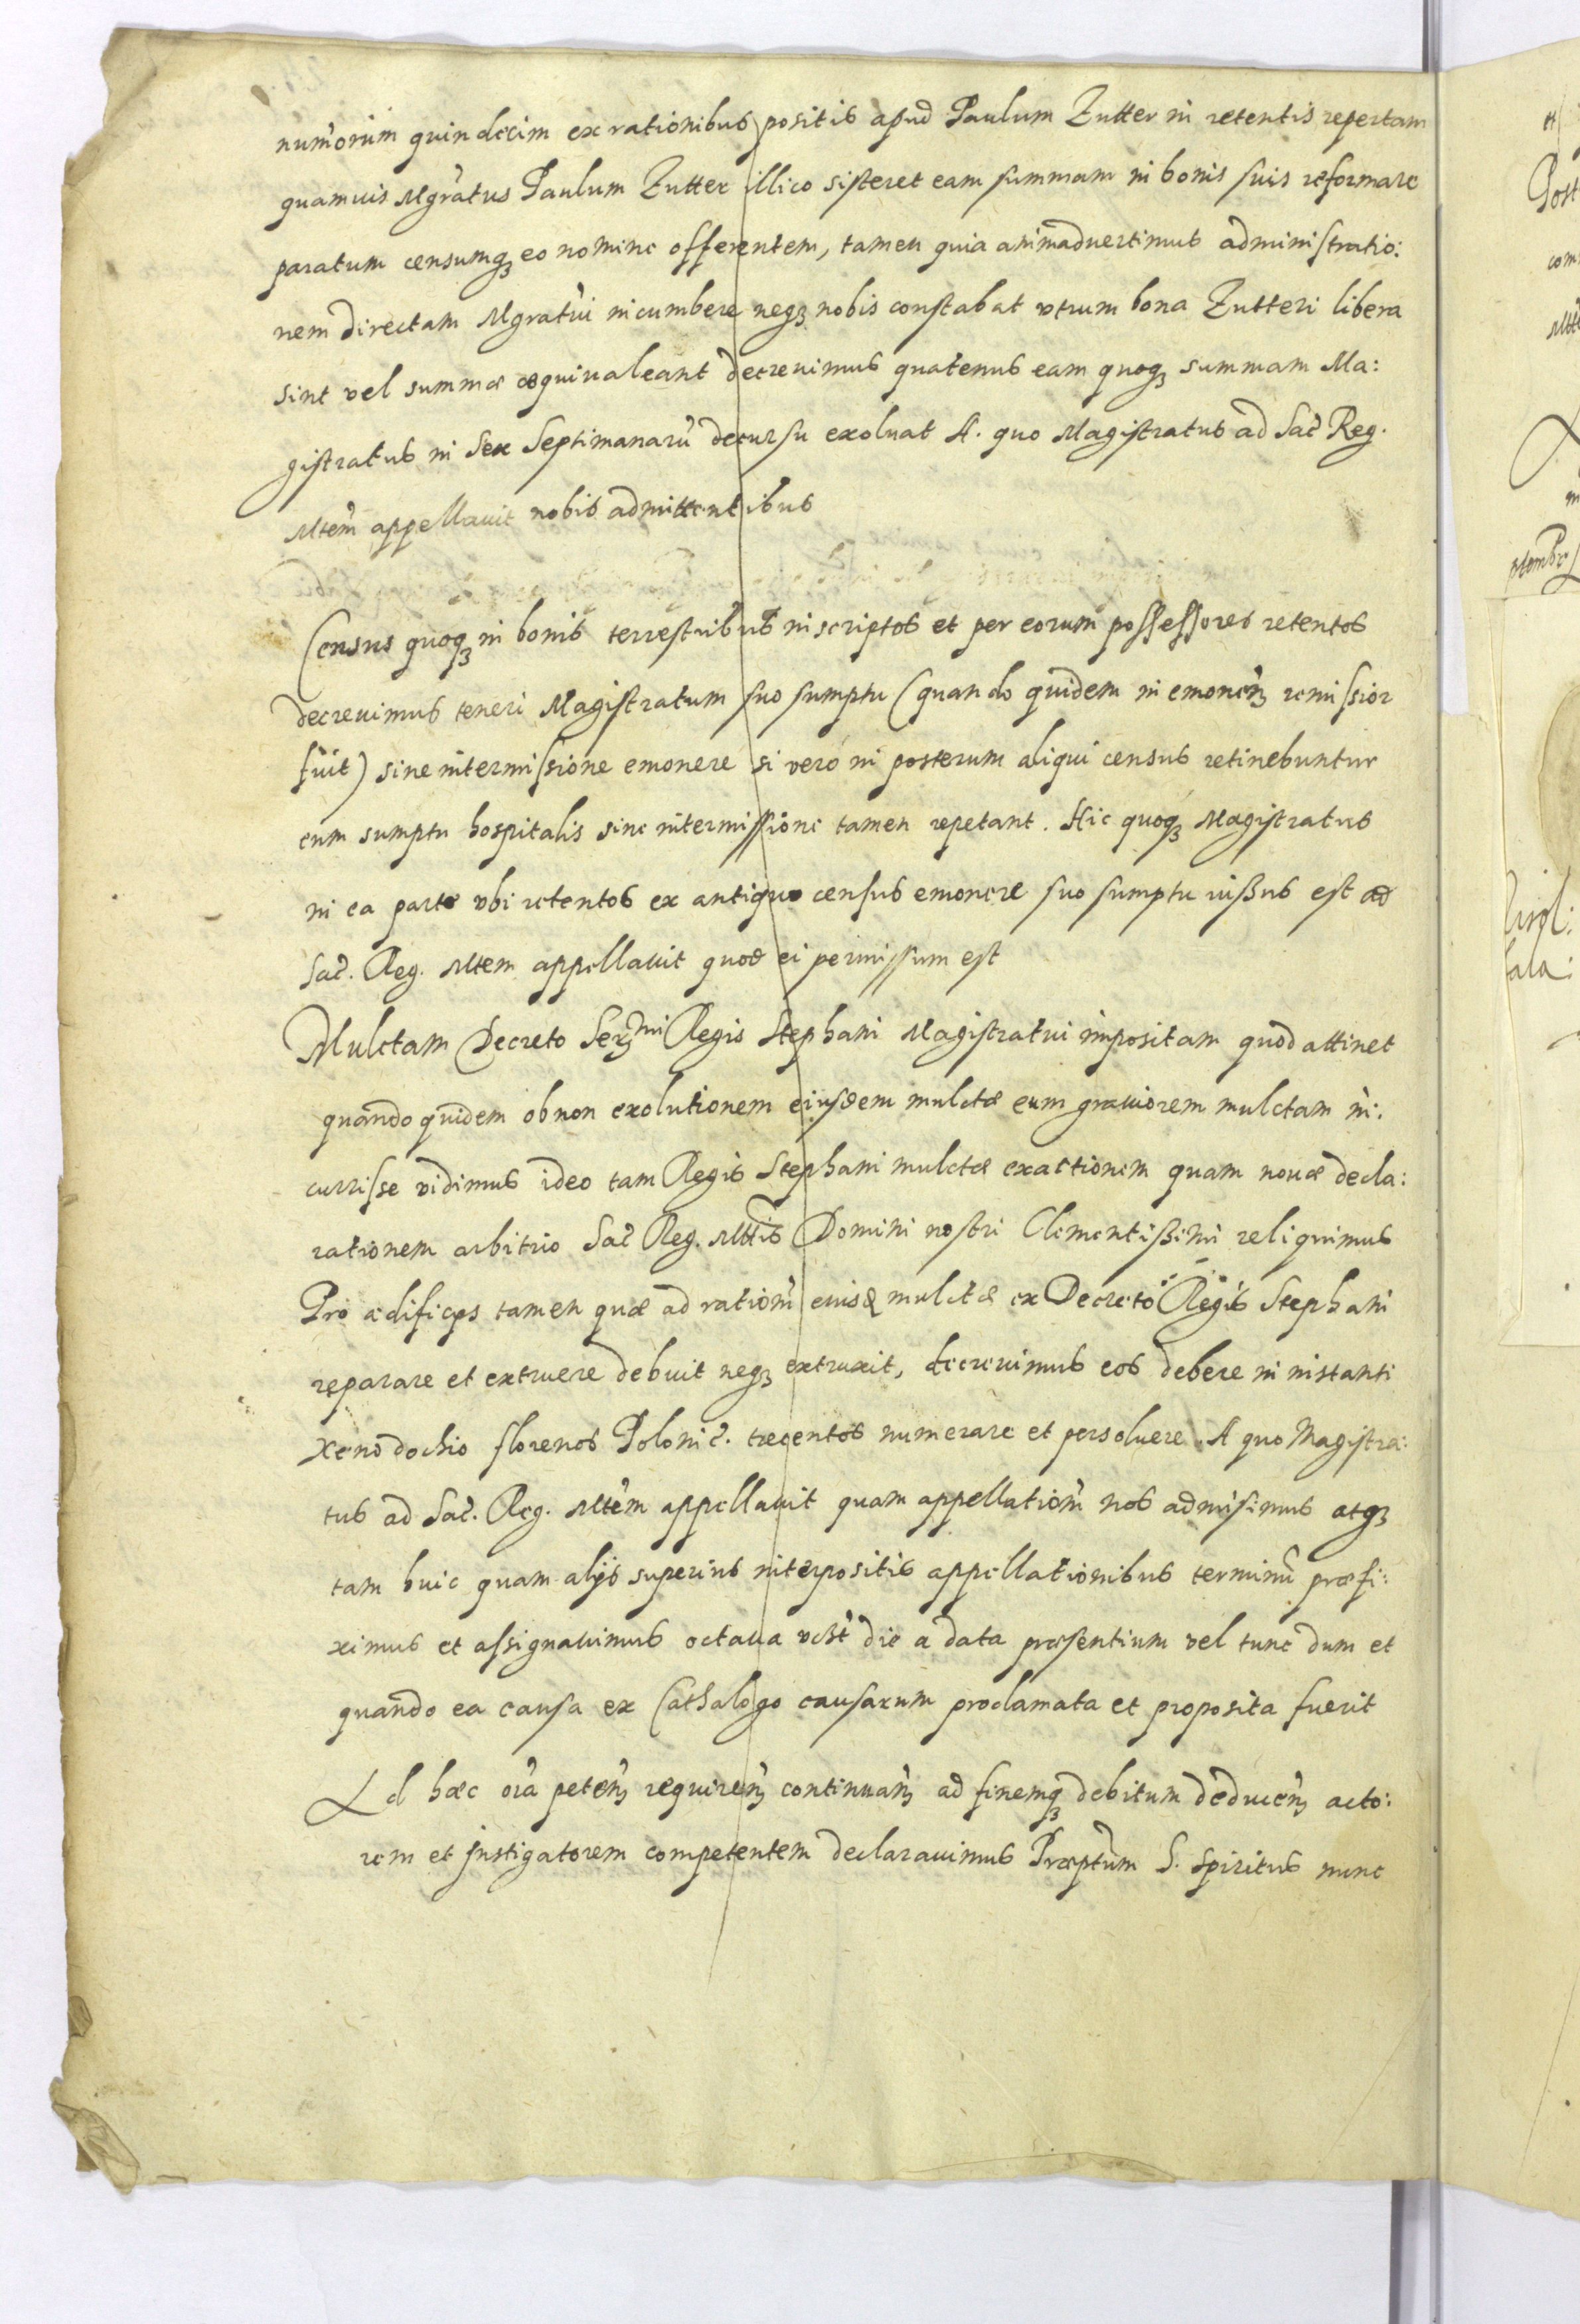 numorum quindecim ex rationibus positis apud Paulum Zutter in retentis repertam
quamuis Mgratus Paulum Zutter illico sisteret eam summam in bonis suis reformare
paratum censumq₃ eo nomine offerentem, tamen quia animaduertimus administratio:
nem directam Mgratui incumbere neq₃ nobis constabat vtrum bona Zutteri libera
sint vel summæ æquiualeant decreuimus quatenus eam quoq₃ summam Ma:
gistratus in Sex Septimanarū decursu exoluat A. quo Magistratus ad Sac̃ Reg.
Mtem̃ appellauit nobis admittentibus
Census quoq₃ in bonis terrestribus inscriptos et per eorum possessores retentos
decreuimus teneri Magistratum suo sumptu (quando quidem in emonen̄ remissior
fuit) sine intermissione emonere si vero in posterum aliqui census retinebuntur
eum sumptu hospitalis sine intermissione tamen repetant. Hic quoq₃ Magistratus
in ea parte vbi retentos ex antiquo census emonere suo sumptu iussus est ad
Sac̃. Reg. Mtem appellauit quod ei permissum est
Mulctam Decreto Ser^mi Regis Stephani Magistratui impositam quod attinet
quandoquidem ob non exolutionem eiusdem mulctæ eum grauiorem mulctam in:
currisse vidimus ideo tam Regis Stephani mulctæ exactionem quam nouæ decla:
rationem arbitrio Sac̃ Reg. Mttis Domini nostri Clementissimi reliquimus
Pro ædificijs tamen quæ ad ration̄m eiusd mulctæ ex Decreto Regis Stephani
reparare et extruere debuit neq₃ extruxit, decreuimus eos debere in instanti
Xenodochio florenos Polonic̃. trecentos numerare et persoluere. A quo Magistra:
tus ad Sac̃. Reg. Mtem̃ appellauit quam appellation̄m nos admisimus atq₃
tam huic quam alijs superius interpositis appellationibus terminū præfi:
ximus et assignauimus octaua die a data præsentium vel tunc dum et
quando ea causa ex Cathalogo causarum proclamata et proposita fuerit
Ad hæc oīa peten̄ requiren̄ continuan̄ ad finemq₃ debitum deducen̄ acto:
rem et Instigatorem competentem declarauimus Præptum S. Spiritus nunc